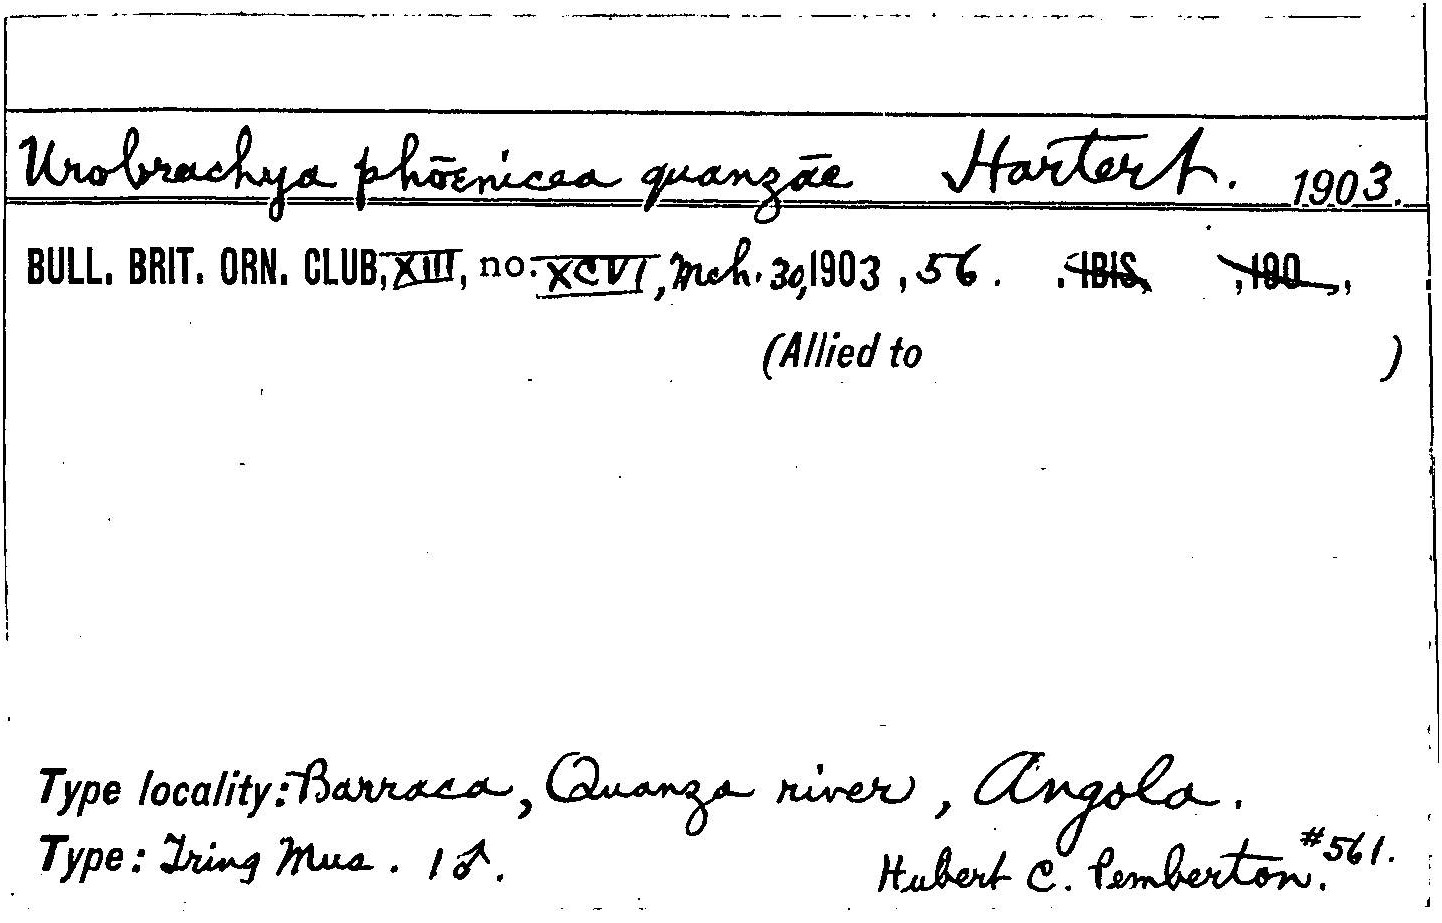 Urobrachya phœnicea quanzæ Hartert. 1903.
BULL. BRIT. ORN. CLUB, XIII, no. XCVI, Mch. 30, 1903, 56. . IBIS, , 190 , ,
(Allied to )
Type locality: Barraca, Quanza river, Angola.
Type: Tring Mus. 1♂. Hubert C. Pemberton. #561.